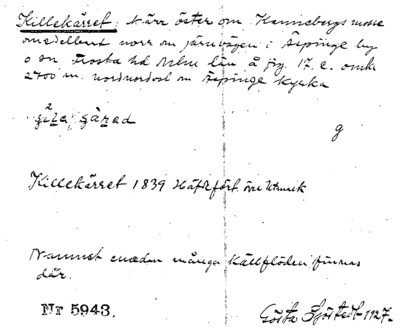 Killekärret: kärr öster om Kennebergs mosse
omedelbart norr om järnvägen i Äspinge by
o sn, Frosta hd Mlm län å fig. 17. c. omkr
2700 m. nordnordost om Äspinge kyrka
g
Killekärret 1839 Häfdefört. öre Utmark
Namnet emedan många källflöden finnas
där.
Nr 5943.
Gösta Sjöstedt 1927.